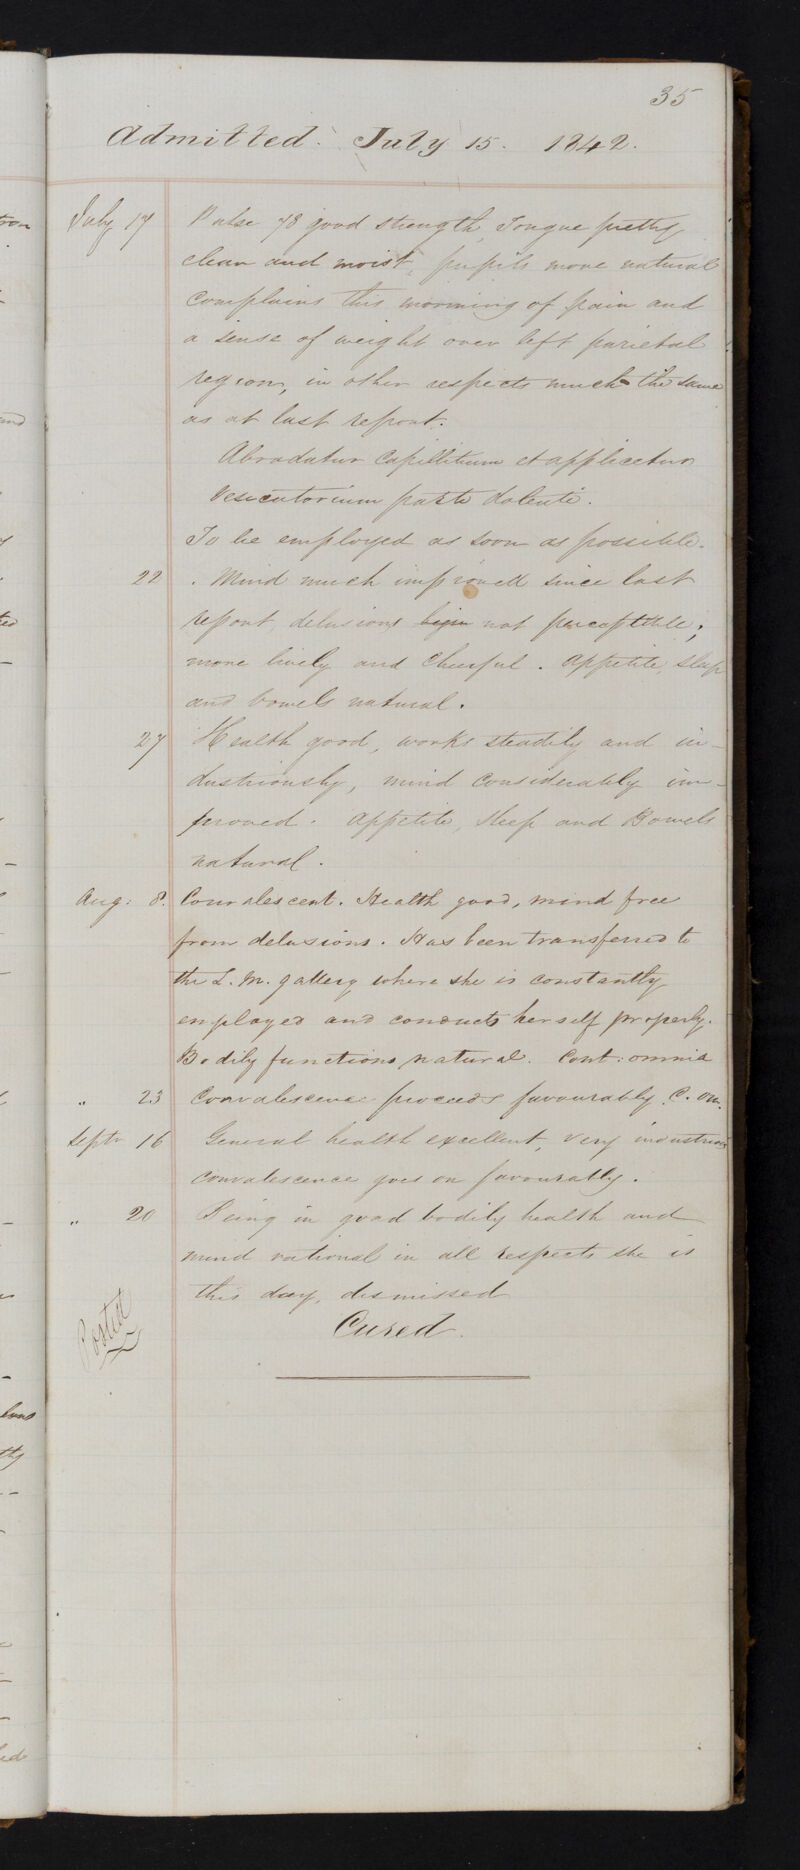 35
Admitted. July 15. 1842.
July 17 Pulse 78 good strength, Tongue pretty
clean and moist, pupils more natural
complains this morning of pain and
a sense of weight over left parietal
region, in other respects much the same
as at last report.
Abradatur Capillitium et applicetur
Vesicatorium parte dolenti.
To be employed as soon as possible.
22 . Mind much improved since last
report, delusions not perceptible;
more lively and cheerful. Appetite, sleep
and bowels natural.
27 Health good, works steadily and in-
dustriously, mind considerably im-
proved. Appetite, sleep and Bowels
natural.
Aug: 8. Convalescent. Health good, mind free
from delusions. Has been transferred to
the L. M. gallery where she is constantly
employed and conducts herself properly.
Bodily functions natural. Cont: omnia
" 23 Convalescence proceeds favourably. C. om.
Septr 16 General health excellent, very industrious
convalescence goes on favourably.
" 20 Being in good bodily health and
mind rational in all respects she is
this day, dismissed
Cured.
Posted